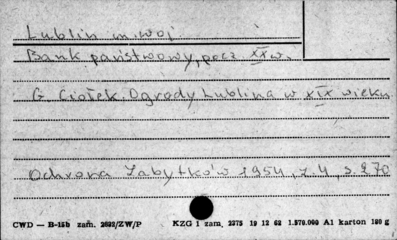 Lublin m. woj
Bank państwowy, pocz XX w.
G. Ciołek. Ogrody Lublina w XIX wieku
Ochrona Zabytków 1954, z. 4, s. 270
CWD — B-15b zam. 2692/ZW/P KZG 1 zam. 2375 19 12 62 1.570.000 A1 karton 180 g